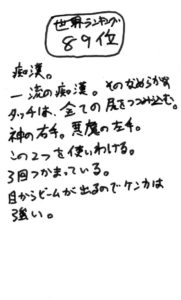 世界ランキング
89位
痴漢。
一流の痴漢。そのなめらかな
タッチは、全ての尻をつつみ込む。
神の右手。悪魔の左手。
この2つを使いわける。
3回つかまっている。
目からビームが出るのでケンカは
強い。